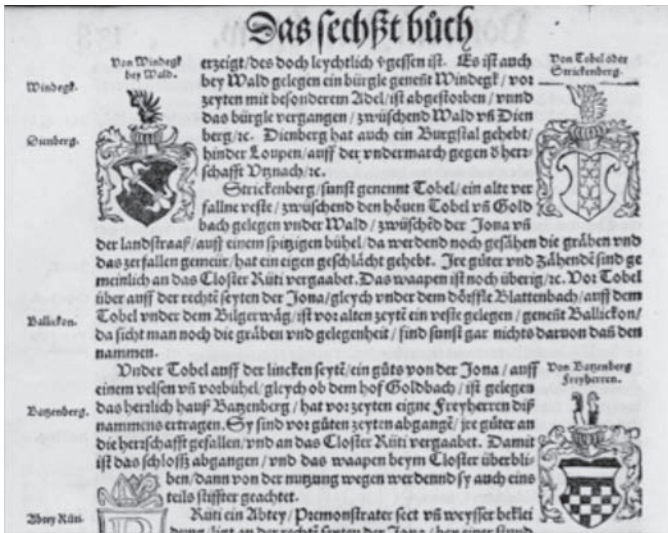 Das sechßt bůch
Von Windegk
bey Wald.
Windegk.
Dienberg.
erzeigt/des doch leychtlich vgessen ist. Es ist auch
bey Wald gelegen ein bürgle geneñt Windegk/vor
zeyten mit besonderem Adel/ist abgestorben/vnnd
das bürgle vergangen/zwüschend Wald vñ Dien
berg/ꝛc. Dienberg hat auch ein Burgstal gehebt/
hinder Loupen/auff der vndermarch gegen d̕ herr-
schafft Vtznach/ꝛc.
Von Tobel oder
Strickenberg.
Strickenberg/sunst genennt Tobel/ein alte ver
fallne veste/zwüschend den höuen Tobel vñ Gold
bach gelegen vnder Wald/zwüschēd der Jona vñ
der landstraaß/auff einem spitzigen bühel/da werdend noch gesähen die gräben vnd
das zerfallen gemeür/hat ein eigen geschlächt gehebt. Jre güter vnd Zähendē sind ge
meinlich an das Closter Rüti vergaabet. Das waapen ist noch überig/ꝛc. Vor Tobel
über auff der rechtē seyten der Jona/gleych vnder dem dörffle Blattenbach/auff dem
Tobel vnder dem Bilgerwäg/ist vor alten zeytē ein veste gelegen/geneñt Ballickon/
da sicht man noch die gräben vnd gelegenheit/sind sunst gar nichts daruon dañ den
nammen.
Ballickon.
Vnder Tobel auff der lincken seytē/ein gůts von der Jona/auff
einem velsen vñ vorbühel/gleych ob dem hof Goldbach/ist gelegen
das herrlich hauß Batzenberg/hat vor zeyten eigne Freyherren diß
nammens ertragen. Sy sind vor gůten zeyten abgangē/jre güter an
die herrschafft gefallen/vnd an das Closter Rüti vergaabet. Damit
ist das schlosß abgangen/vnd das waapen beym Closter überbli-
ben/dann von der nutzung wegen werdennd sy auch eins
teils stiffter geachtet.
Batzenberg.
Von Batzenberg
Freyherren.
Abtey Rüti.
Rüti ein Abtey/Premonstrater sect vñ weysser beklei
dung/ligt an der rechtē seyten der Jona/